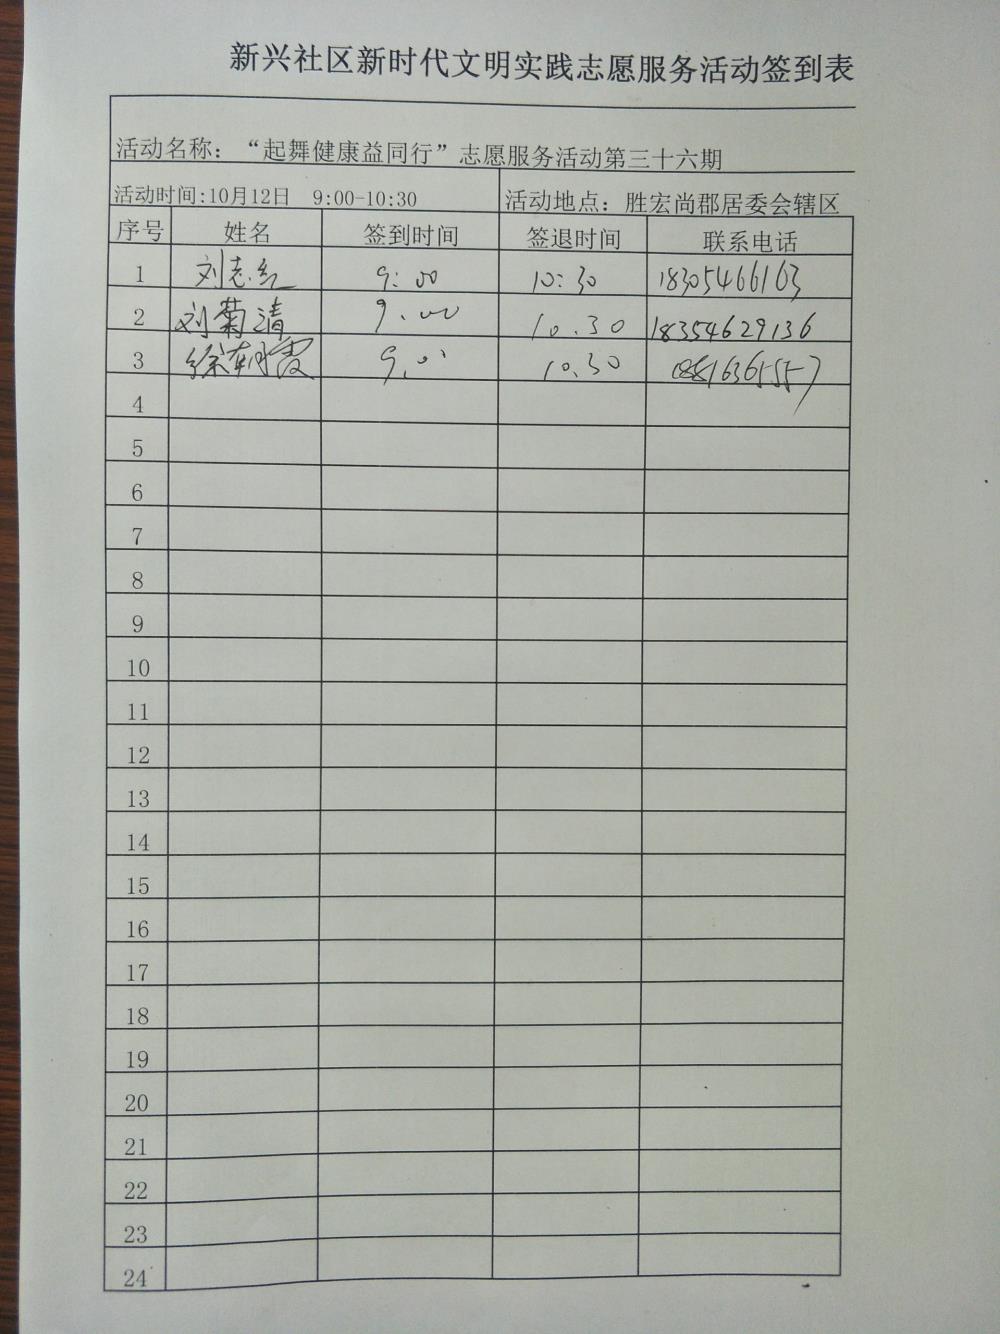 新兴社区新时代文明实践志愿服务活动签到表
活动名称：“起舞健康益同行”志愿服务活动第三十六期
活动时间:10月12日 9:00-10:30 活动地点：胜宏尚郡居委会辖区
序号 姓名 签到时间 签退时间 联系电话
1 刘志红 9:00 10:30 18305466163
2 刘菊清 9.00 10.30 18354629136
3 徐朝霞 9.00 10.30
4
5
6
7
8
9
10
11
12
13
14
15
16
17
18
19
20
21
22
23
24